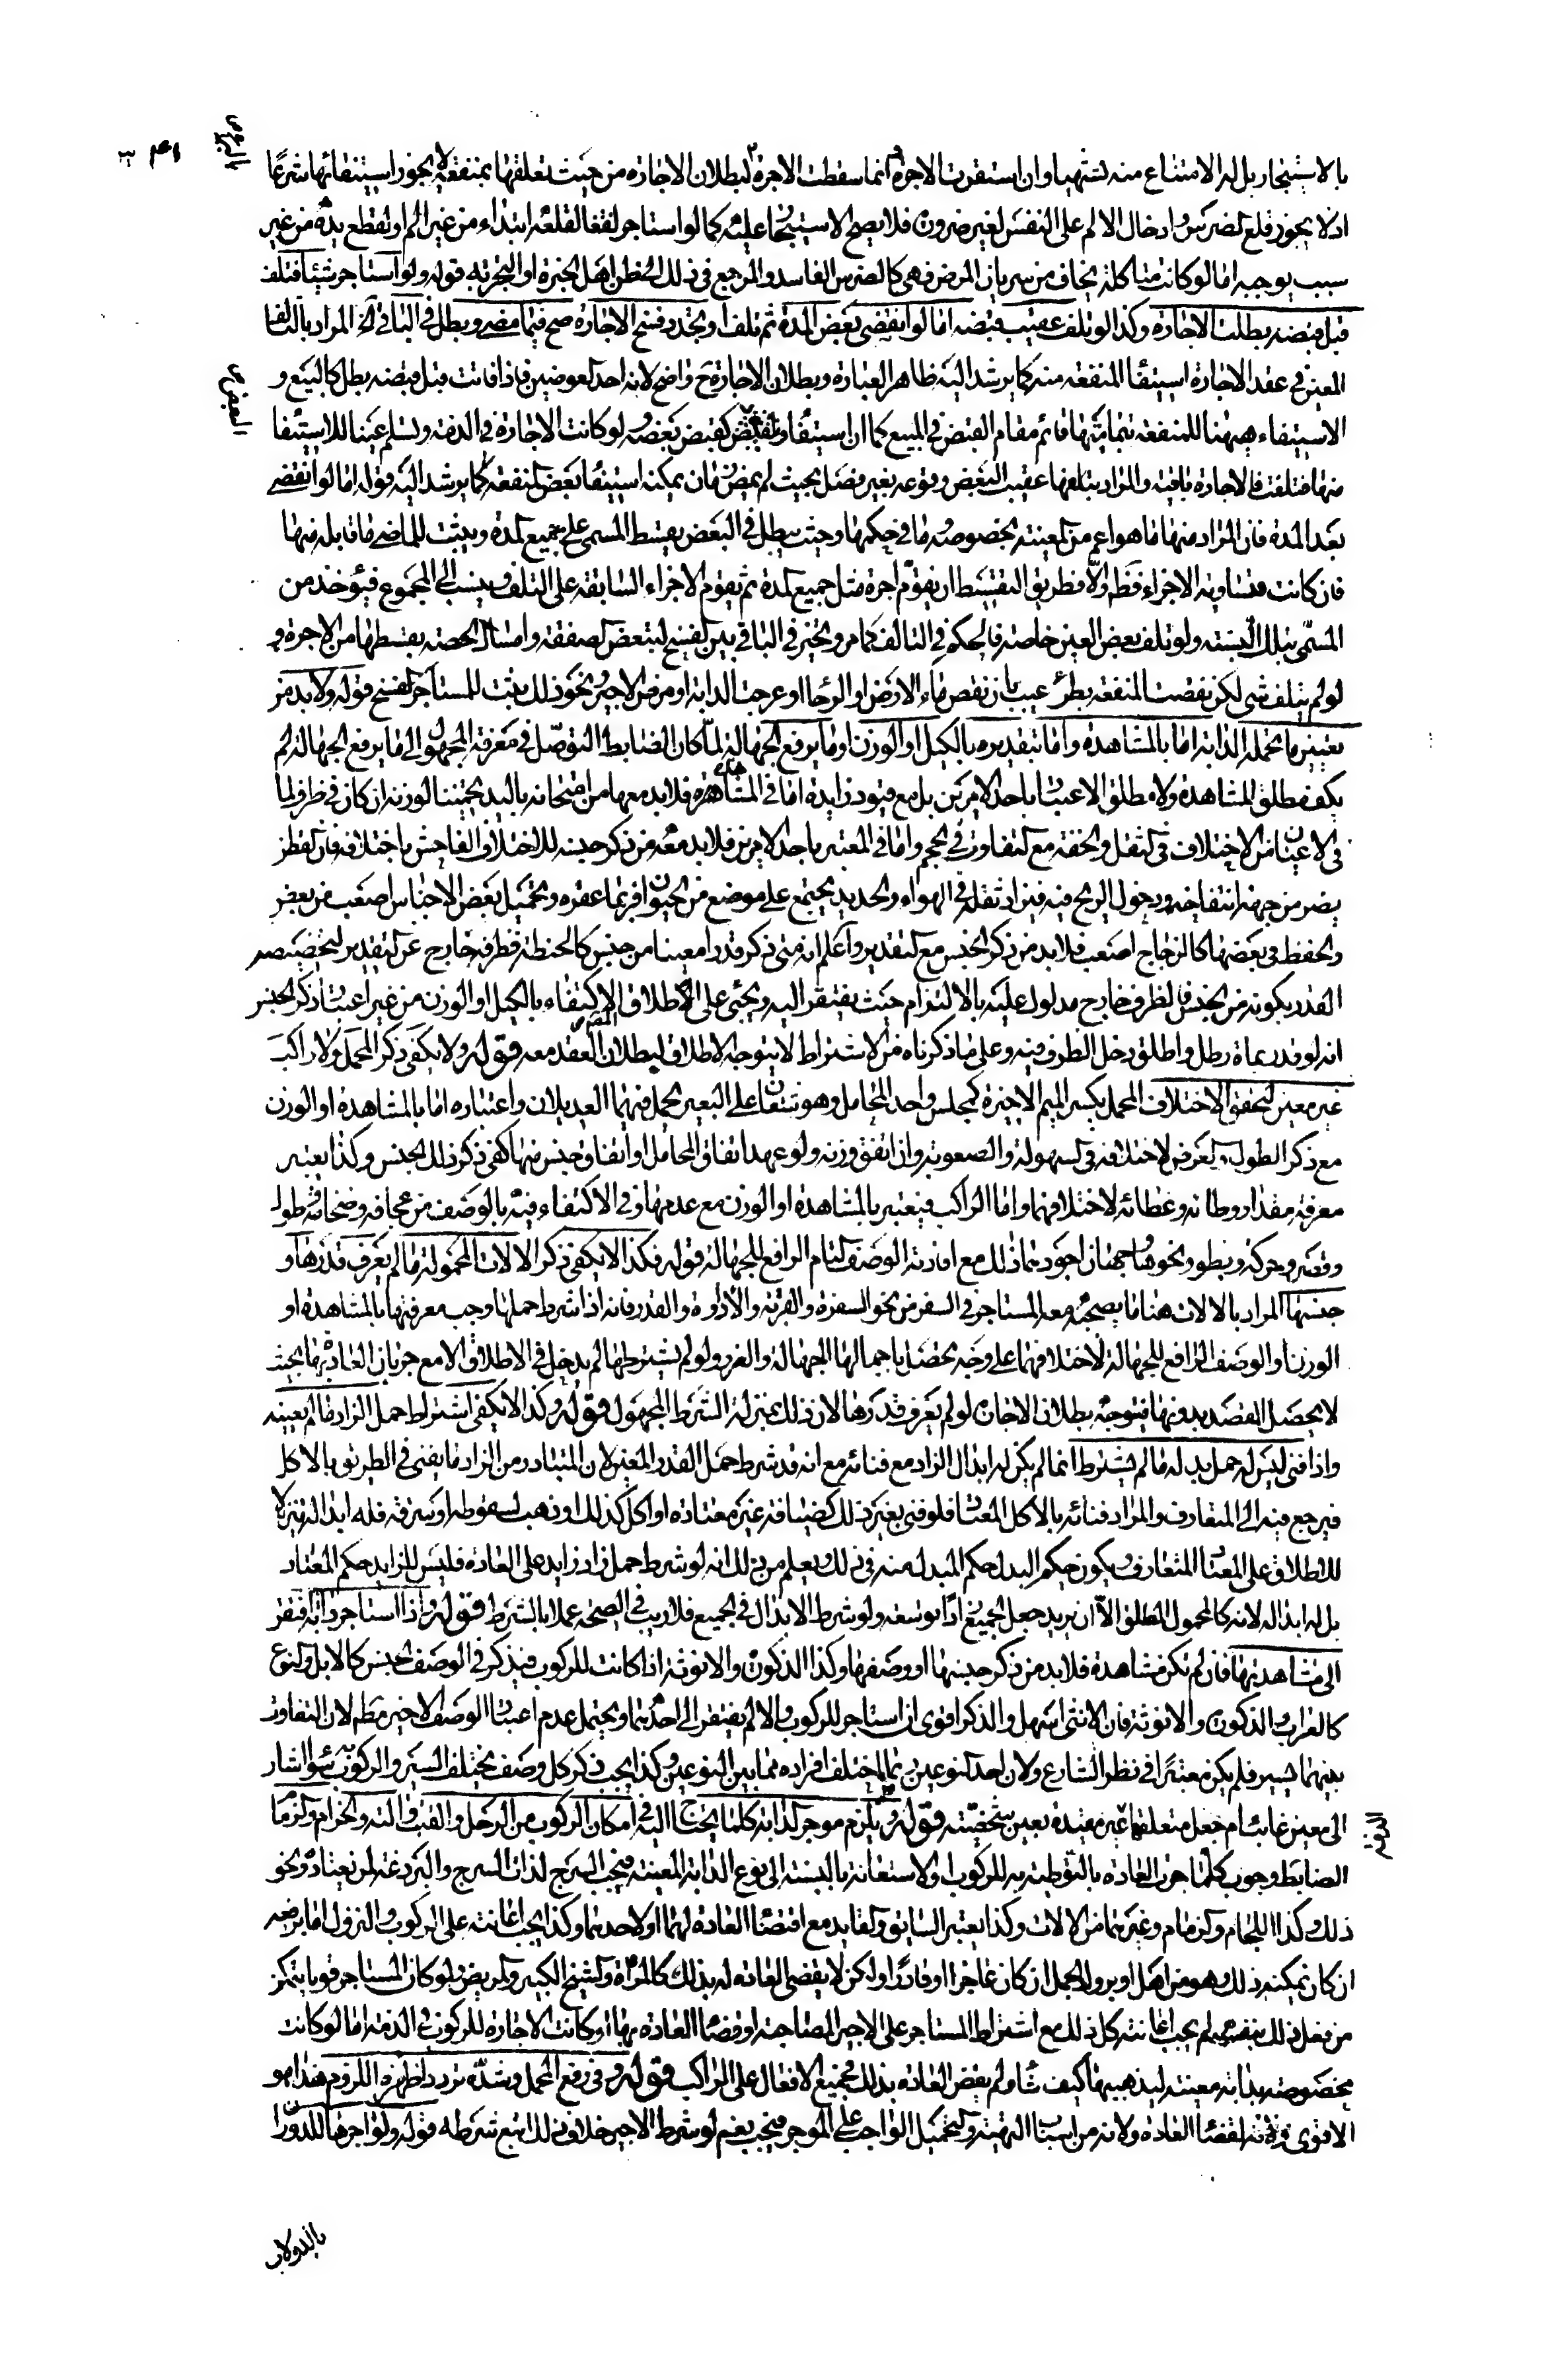 بالاستیجار بل له الامتناع منه تشهیا وان استقرت الاجرة وانما سقطت الاجرة لبطلان الاجارة من حیث تعلقها بمنفعة لا یجوز استیفائها شرعًا
اذ لا یجوز قلع الضرس وادخال الالم علی النفس لغیر ضرورة فلا یصح الاستیجار علیه کما لو استاجر لقلعه ابتداء من غیر الم او لقطع یده من غیر
سبب یوجبه اما لو کانت متاکلة یخاف من سریان المرض فهی کالضرس الفاسد والمرجع فی ذلک الی ظن اهل الخبرة او التجربة قوله ولو استاجر شیئا فتلف
قبل قبضه بطلت الاجارة وکذا لو تلف عقیب قبضه اما لو انقضی بعض المدة ثم تلف او تجدد فسخ الاجارة صح فیما مضی وبطل فی الباقی المراد بالتالف
المعین فی عقد الاجارة استیفاء المنفعة منه کما یرشد الیه ظاهر العبارة وبطلان الاجارة ح واضح لانه احد العوضین فاذا فاتت قبل قبضه بطل کالبیع و
الاستیفاء ههنا للمنفعة بتمامها قائم مقام القبض فی المبیع کما ان استیفاء البعض کقبض بعضه ولو کانت الاجارة فی الذمة وتسلم عینا للاستیفاء
منها فتلفت فالاجارة باقیة والمراد بتلفها عقیب القبض وقوعه بغیر فصل بحیث لم یمض زمان یمکن استیفاء بعض المنفعة کما یرشد الیه قوله اما لو انقضی
بعد المدة فان المراد منها ما هو اعم من المعینة بخصوصه وما فی حکمها وحیث یبطل فی البعض یقسط المسمی علی جمیع المدة ویثبت للماضی ما قابله منها
فان کانت متساویة الاجزاء فظ والا فطریق التقسیط ان یقوم اجرة مثل جمیع المدة ثم یقوم الاجزاء السابقة علی التلف وینسب الی المجموع فیؤخذ من
المسمی بتلک النسبة ولو تلف بعض العین خاصة فالحکم فی التالف کما مر ویتخیر فی الباقی بین الفسخ لتبعض الصفقة وامساک الحصة بقسطها من الاجرة و
لو لم یتلف شی لکن نقصت المنفعة بطرؤ عیب بان نقص ماء الارض او الرحا او عرجت الدابة او مرض الاجیر ونحو ذلک یثبت للمستاجر الفسخ قوله ولا بد من
تعیین ما تحمله الدابة اما بالمشاهدة واما بتقدیره بالکیل او الوزن او ما یرفع الجهالة لما کان الضابط التوصل فی معرفة المجهول الی ما یرفع الجهالة لم
یکف مطلق المشاهدة ولا مطلق الاعتبار باحد الامرین بل مع قیود زایدة اما فی المشاهدة فلا بد معها من امتحانه بالید تخمینا لوزنه ان کان فی ظرف لما
فی الاعیان من الاختلاف فی الثقل والخفة مع التفاوت فی الحجم واما فی المعتبر باحد الامرین فلا بد معه من ذکر جنسه للاختلاف الفاحش باختلافه فان القطن
یضر من جهة انتفاخه ودخول الریح فیه فیزاد ثقله فی الهواء والحدید یجتمع علی موضع من الحیوان فربما عقره وتحمیل بعض الاجناس اصعب من بعض
والحفظ فی بعضها کالزجاج اصعب فلا بد من ذکر الجنس مع التقدیر واعلم انه متی ذکر قدرا معینا من جنس کالحنطة فظرفه خارج عن التقدیر لتخصیصه
القدر بکونه من الجنس فالظرف خارج مدلول علیه بالالتزام حیث یفتقر الیه ویجئ علی الاطلاق الاکتفاء بالکیل او الوزن من غیر اعتبار ذکر الجنس
انه لو قدر بماة رطل واطلق دخل الظرف فیه وعلی ما ذکرناه من الاشتراط لا یتوجه الاطلاق لبطلان العقد معه قوله ولا یکفی ذکر المحمل ولا راکب
غیر معین لتحقق الاختلاف المحمل بکسر المیم الاخیرة کمجلس واحد المحامل وهو شقان علی البعیر یحمل فیهما العدیلان واعتباره اما بالمشاهدة او الوزن
مع ذکر الطول والعرض لاختلافه فی السهولة والصعوبة وان اتفق وزنه ولو عهد اتفاق المحامل او اتفاق جنس منها کفی ذکر ذلک الجنس وکذا یعتبر
معرفة مقدار وطائه وغطائه لاختلافهما واما الراکب فیعتبر بالمشاهدة او الوزن مع عدمها وفی الاکتفاء فیه بالوصف من نحافة وضخامة وطول
وقصر وحرکة وبطوء ونحوها وجهان اجودهما ذلک مع افادته الوصف التام الرافع للجهالة قوله فکذا لا یکفی ذکر الالات المحمولة ما لم یعرف قدرها و
جنسها المراد بالالات هنا ما یصحبه معه المستاجر فی السفر من نحو السفرة والقربة والاداوة والقدر فانه اذا شرط حملها وجب معرفتها بالمشاهدة او
الوزن او الوصف الرافع للجهالة لاختلافهما علی وجه یحصل باجمالها الجهالة والغرر ولو لم یشترطها لم یدخل فی الاطلاق الا مع جریان العادة بها بحیث
لا یحصل القصد بدونها فیتوجه بطلان الاجارة لو لم یعرف قدرها لان ذلک بمنزلة الشرط المجهول قوله وکذا لا یکفی اشتراط حمل الزاد ما لم یعینه
واذا فنی لیس له حمل بدله ما لم یشترط انما لم یکن له ابدال الزاد مع فنائه مع انه قد شرط حمل القدر المعین لان المتبادر من الزاد ما یفنی فی الطریق بالاکل
فیرجع فیه الی المتعارف والمراد فنائه بالاکل المعتاد فلو فنی بغیر ذلک کضیافة غیر معتادة او اکل کذلک او ذهب لسقوطه او سرقة فله ابداله تنزیلا
للاطلاق علی المعتاد المتعارف ویکون حکم البدل حکم المبدل منه فی ذلک ویعلم من ذلک انه لو شرط حمل زاد زاید علی العادة فلیس للزاید حکم المعتاد
بل له ابداله لانه کالمحمول المطلق الا ان یرید جعل الجمیع زادًا توسعة ولو شرط الابدال فی الجمیع فلا ریب فی الصحة عملا بالشرط قوله واذا استاجر دابة افتقر
الی مشاهدتها فان لم تکن مشاهدة فلا بد من ذکر جنسها او وصفها وکذا الذکورة والانوثة اذا کانت للرکوب فیذکر فی الوصف الجنس کالابل والنوع
کالعراب والذکورة والانوثة فان الانثی اسهل والذکر اقوی ان استاجر للرکوب والا لم یفتقر الی احدهما ویحتمل عدم اعتبار الوصف الاخیر مط لان التفاوت
بینهما یسیر فلم یکن معتبرا فی نظر الشارع ولان احد النوعین ربما اختلف افراده مما بین النوعین وکذا یجب ذکر کل وصف یختلف السیر والرکوب به سواء اشار
الی معین غائب ام جعل متعلقها غیر مقیدة بعین شخصیة قوله ویلزم موجر الدابة کلما یحتاج الیه فی امکان الرکوب من الرحل والقتب والته والحزام والزمام
الضابط وجوب کلما جرت العادة بالتوطئة به للرکوب والاستعانة بالنسبة الی نوع الدابة المعینة فیجب السرج لذات السرج والبردعة لمن یعتاده ونحو
ذلک وکذا اللجام والزمام وغیرهما من الالات وکذا یعتبر السایق والقاید مع اقتضاء العادة لهما او لاحدهما وکذا یجب اعانته علی الرکوب والنزول اما برفعه
ان کان یمکنه ذلک وهو من اهل او بروک الجمل ان کان عاجزا او قادرا ولکن لا یقضی العادة له بذلک کالمراة والشیخ الکبیر والمریض ولو کان المستاجر قویا یتمکن
من فعل ذلک بنفسه لم یجب اعانته کل ذلک مع اشتراط المستاجر علی الاجیر المصاحبة او قضاء العادة بها او کانت الاجارة للرکوب فی الذمة اما لو کانت
مخصوصة بدابة معینة لیذهب بها کیف شاء ولم یقض العادة بذلک فجمیع الافعال علی الراکب قوله وفی رفع المحمل وشده تردد اظهره اللزوم هذا هو
الاقوی لاقتضاء العادة ولانه من اسباب التهیئة والتحمیل الواجب علی الموجر فیجب نعم لو شرط الاجیر خلاف ذلک اتبع شرطه قوله ولو اجرها للدوران
بالدولاب